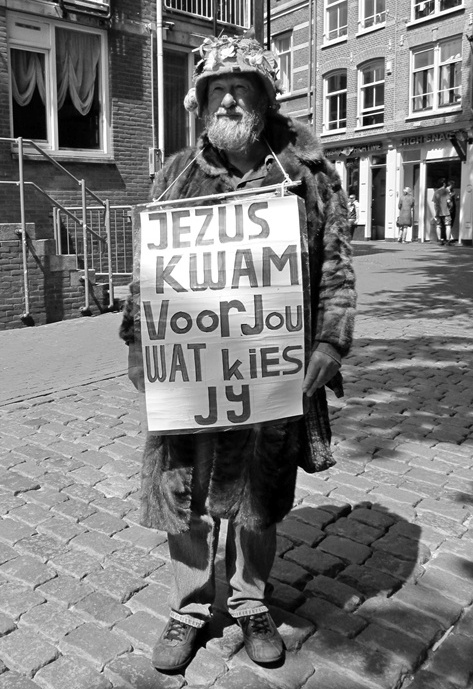 JEZUS
KWAM
VOOR JOU
WAT kiES
JY